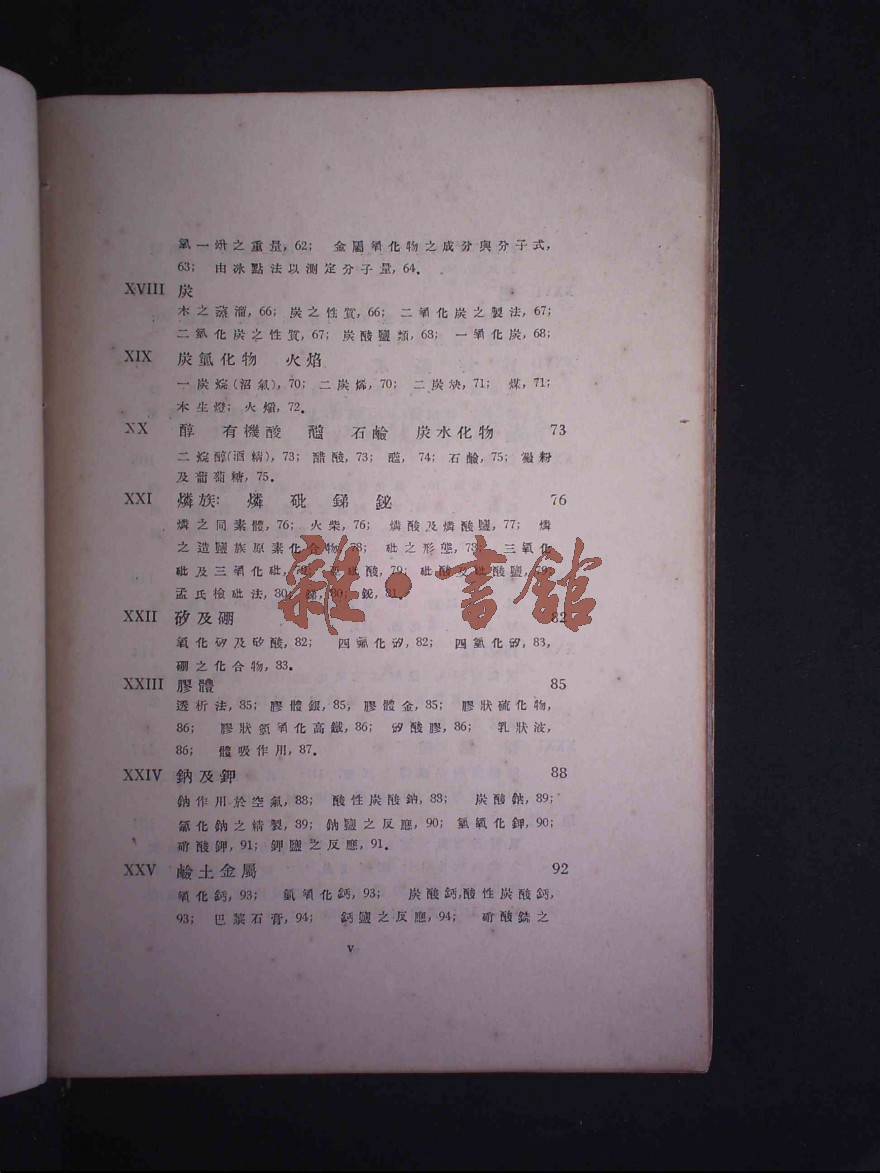 一 之重量, 62; 金屬氧化物之成分與分子式,
63; 由冰點法以測定分子量, 64.
XVIII 炭
木之蒸溜, 66; 炭之性質, 66; 二氧化炭之製法, 67;
二氧化炭之性質, 67; 炭酸鹽類, 68; 一氧化炭, 68;
XIX 炭氫化物 火焰
一炭烷(沼氣), 70; 二炭烯, 70; 二炭炔, 71; 煤, 71;
本生燈; 火焰, 72.
XX 醇 有機酸 石鹼 炭水化物 73
二烷醇(酒精), 73; 醋酸, 73; 74; 石鹼, 75; 澱粉
及葡萄糖, 75.
XXI 燐族: 燐 砒 銻 鉍 76
燐之同素體, 76; 火柴, 76; 燐酸及燐酸鹽, 77; 燐
之造鹽族原素化合物, 78; 砒之形態, 78; 三氧化
砒及三氯化砒, 79; 砒酸, 79; 砒酸及砒酸鹽, 79;
孟氏檢砒法, 80; 銻, 80; 鉍, 81.
雜·書館
XXII 矽及硼 82
氧化矽及矽酸, 82; 四氟化矽, 82; 四氯化矽, 83,
硼之化合物, 83.
XXIII 膠體 85
透析法, 85; 膠體銀, 85, 膠體金, 85; 膠狀硫化物,
86; 膠狀氫氧化高鐵, 86; 矽酸膠, 86; 乳狀液,
86; 體吸作用, 87.
XXIV 鈉及鉀 88
鈉作用於空氣, 88; 酸性炭酸鈉, 88; 炭酸鈉, 89;
氯化鈉之精製, 89; 鈉鹽之反應, 90; 氫氧化鉀, 90;
硝酸鉀, 91; 鉀鹽之反應, 91.
XXV 鹼土金屬 92
氧化鈣, 93; 氫氧化鈣, 93; 炭酸鈣, 酸性炭酸鈣,
93; 巴黎石膏, 94; 鈣鹽之反應, 94; 硝酸鍶之
v